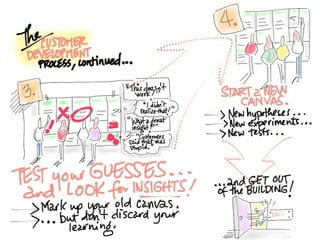 The
CUSTOMER
DEVELOPMENT
PROCESS, continued...
3.
"This doesn't
work!"
"I didn't
realize that!"
"What a great
insight!"
"Customers
said that was
stupid."
TEST your GUESSES...
and LOOK for INSIGHTS!
Mark up your old canvas.
...but don't discard your
learning.
4.
START a NEW
CANVAS.
New hypotheses...
New experiments...
New tests...
...and GET OUT
of the BUILDING!